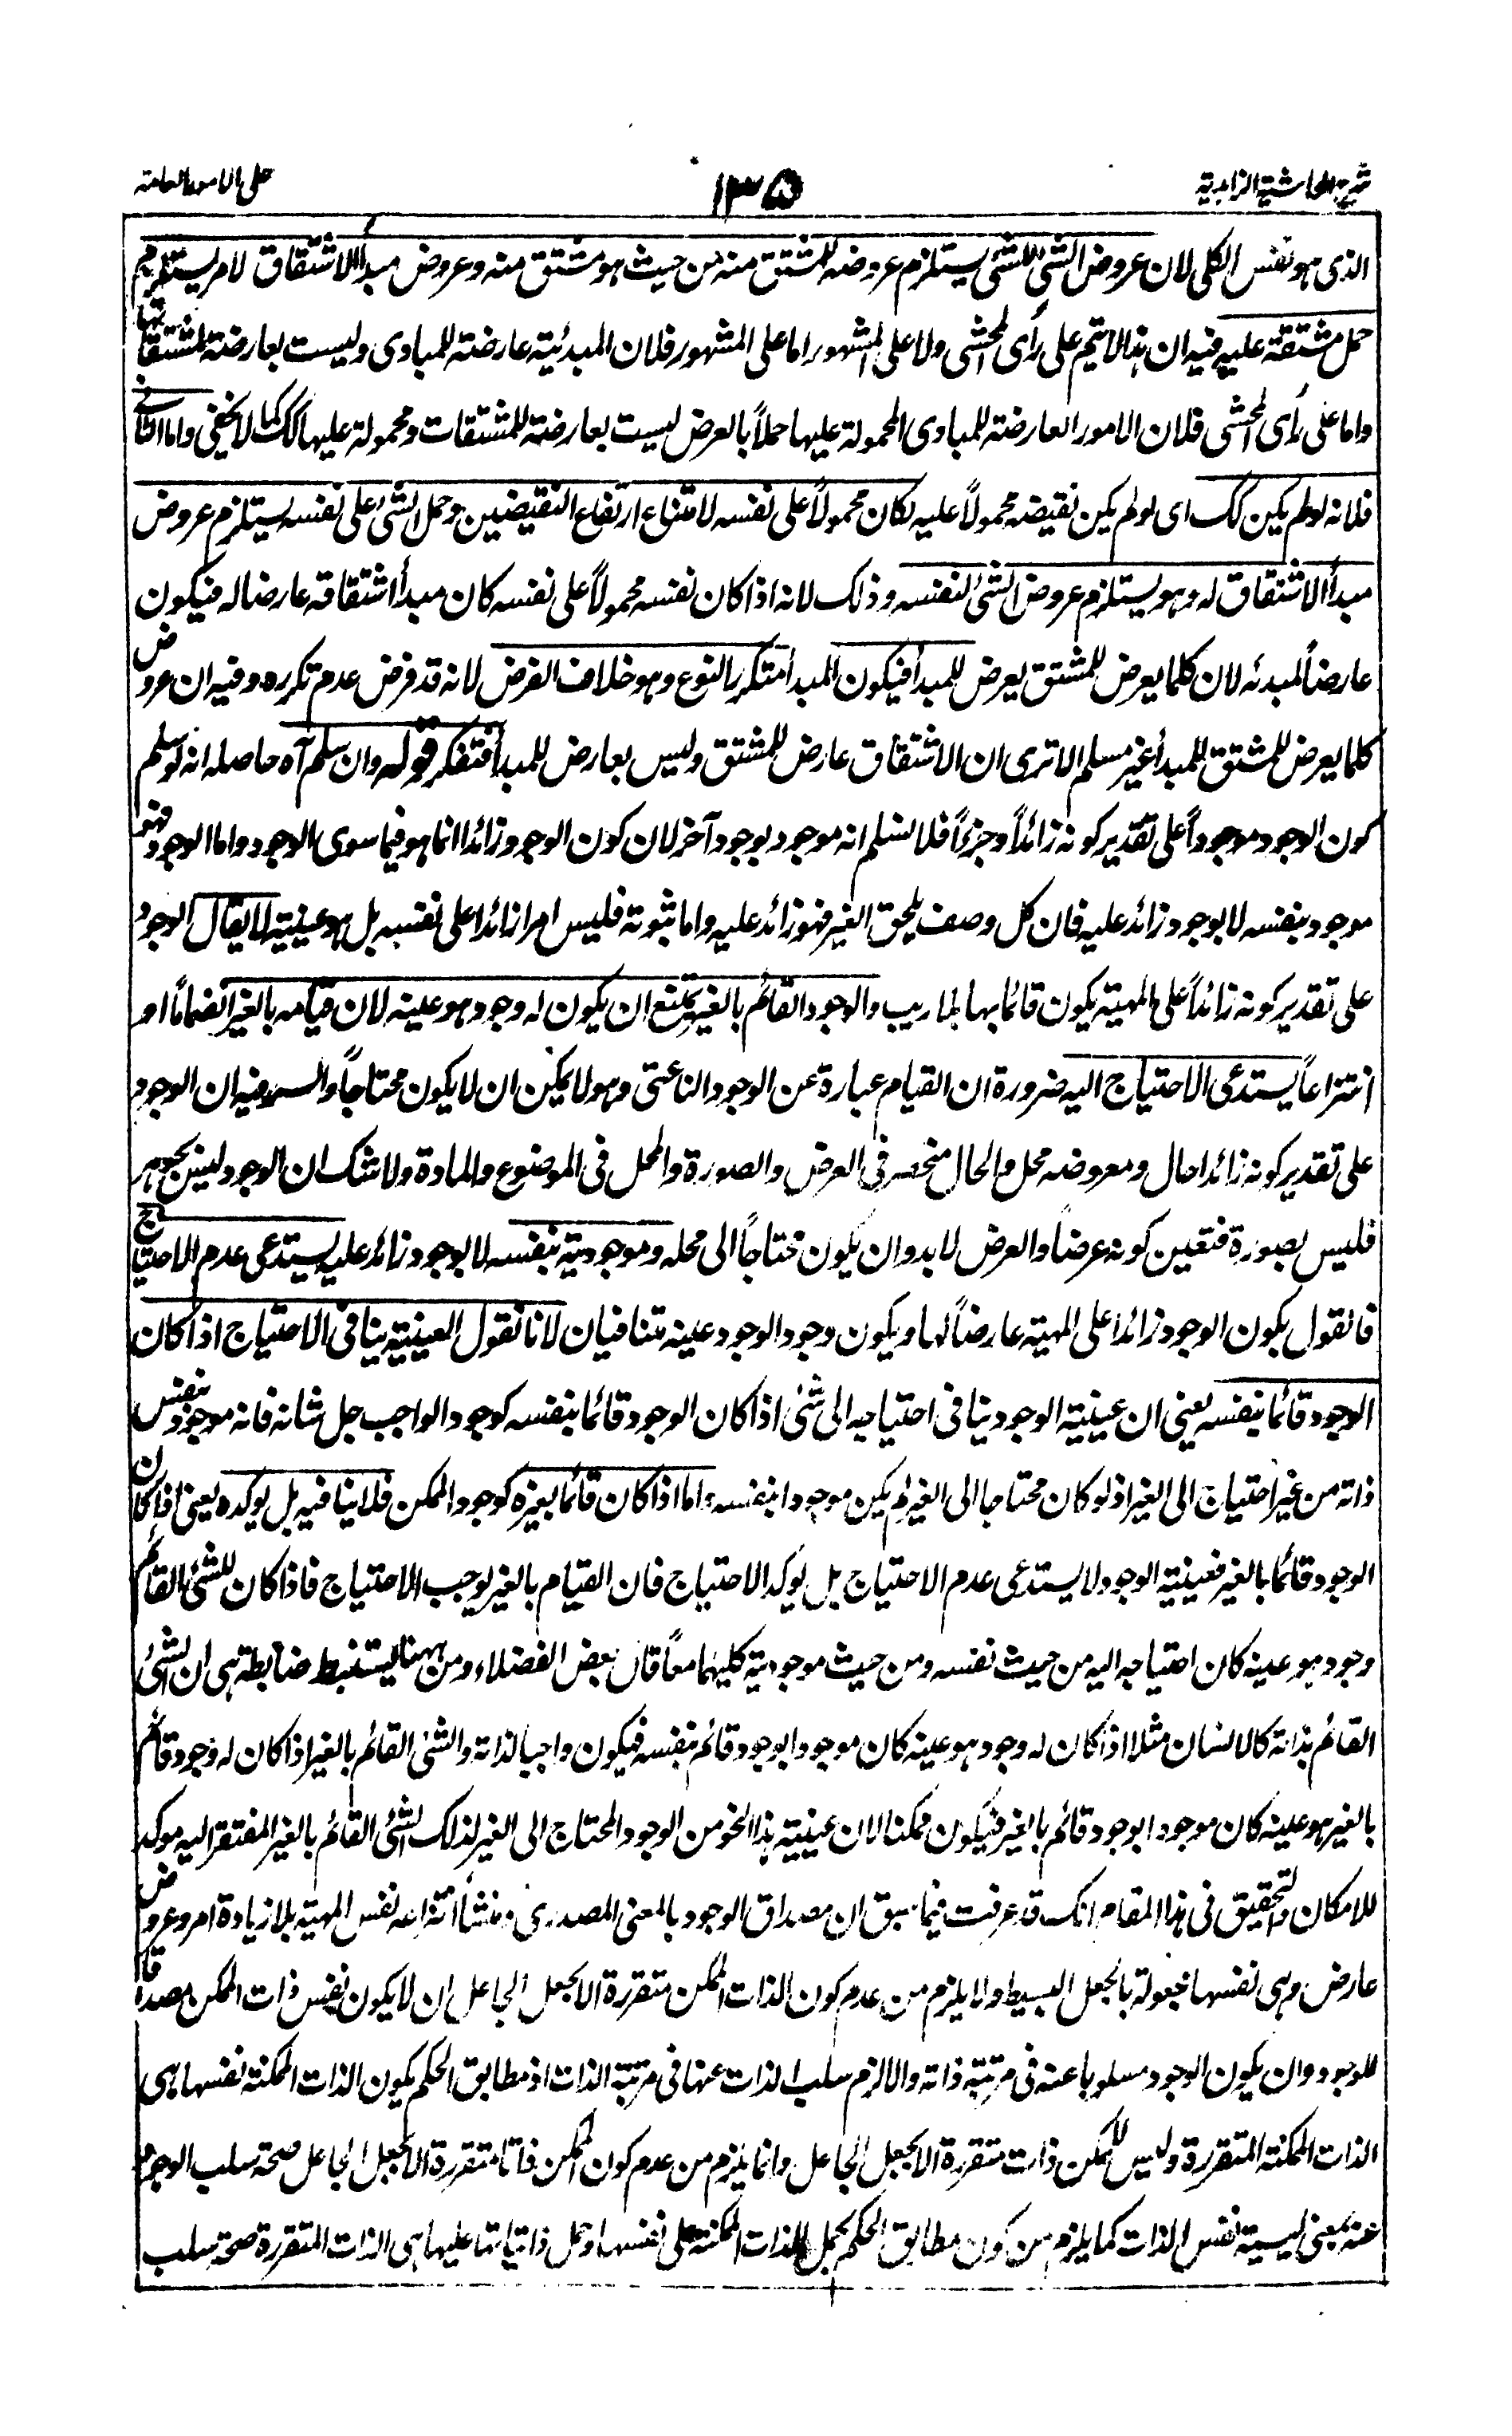 شرح الحاشية الزاهدية
١٣٥
على الامور العامة
الذى هو نفس الكلى لان عروض الشئ للشئ يستلزم عروضه للمشتق منه من حيث هو مشتق منه وعروض مبدأ الاشتقاق لامر يستلزم
حمل مشتقه عليه فيه ان هذا لا يتم على رأى المحشى ولا على المشهور اما على المشهور فلان المبدئية عارضة للمبادى وليست بعارضة لمشتقاتها
واما على رأى المحشى فلان الامور العارضة للمبادى المحمولة عليها حملاً بالعرض ليست بعارضة للمشتقات ومحمولة عليها كك كما لا يخفى واما الثانى
فلانه لو لم يكن كك اى لو لم يكن نقيضه محمولاً عليه لكان محمولاً على نفسه لامتناع ارتفاع النقيضين وحمل الشئ على نفسه يستلزم عروض
مبدأ الاشتقاق له وهو يستلزم عروض الشئ لنفسه وذلك لانه اذا كان نفسه محمولاً على نفسه كان مبدأ اشتقاقه عارضا له فيكون
عارضاً لمبدئه لان كلما يعرض للمشتق يعرض للمبدأ فيكون المبدأ متكرر بالنوع وهو خلاف الفرض لانه قد فرض عدم تكرره وفيه ان عروض
كلما يعرض للمشتق للمبدأ غير مسلم الا ترى ان الاشتقاق عارض للمشتق وليس بعارض للمبدأ فتفكر قوله وان سلم آه حاصله انه لو سلم
كون الوجود موجوداً على تقدير كونه زائداً وجزءاً فلا نسلم انه موجود بوجود آخر لان كون الوجود زائدا انما هو فيما سوى الوجود واما الوجود فهو
موجود بنفسه لا بوجود زائد عليه فان كل وصف يلحق الغير فهو زائد عليه واما ثبوته فليس امرا زائدا على نفسه بل هو عينيته لا يقال الوجود
على تقدير كونه زائداً على المهية يكون قائما بها بلا ريب والوجود القائم بالغير يمتنع ان يكون له وجود هو عينه لان قيامه بالغير انضماما او
انتزاعاً يستدعى الاحتياج اليه ضرورة ان القيام عبارة عن الوجود الناعتى وهو لا يمكن ان لا يكون محتاجاً والسر فيه ان الوجود
على تقدير كونه زائدا حال ومعروضه محل والحال منحصر فى العرض والصورة والمحل فى الموضوع والمادة ولا شك ان الوجود ليس بجوهر
فليس بصورة فتعين كونه عرضا والعرض لا بد وان يكون محتاجاً الى محله وموجوديته بنفسه لا بوجود زائد عليه يستدعى عدم الاحتياج
فالقول بكون الوجود زائدا على المهية عارضاً لها وبكون وجود الوجود عينه متنافيان لانا نقول العينية ينافى الاحتياج اذا كان
الوجود قائما بنفسه يعنى ان عينية الوجود ينافى احتياجه الى شئ اذا كان الوجود قائما بنفسه كوجود الواجب جل شانه فانه موجود بنفس
ذاته من غير احتياج الى الغير اذ لو كان محتاجا الى الغير لم يكن موجودا بنفسه واما اذا كان قائما بغيره كوجود الممكن فلا ينافيه بل يوكده يعنى اذا كان
الوجود قائما بالغير فعينية الوجود لا يستدعى عدم الاحتياج بل يوكد الاحتياج فان القيام بالغير يوجب الاحتياج فاذا كان للشئ القائم
وجود هو عينه كان احتياجه اليه من حيث نفسه ومن حيث موجوديته كليهما معاً قال بعض الفضلاء ومن ههنا يستنبط ضابطة هى ان الشئ
القائم بذاته كالانسان مثلا اذا كان له وجود هو عينه كان موجودا بوجود قائم بنفسه فيكون واجبا لذاته والشئ القائم بالغير اذا كان له وجود قائم
بالغير هو عينه كان موجودا بوجود قائم بالغير فيكون ممكنا لان عينية هذا النحو من الوجود المحتاج الى الغير لذلك الشئ القائم بالغير المفتقر اليه موكد
للامكان والتحقيق فى هذا المقام انك قد عرفت فيما سبق ان مصداق الوجود بالمعنى المصدرى ومنشأ انتزاعه نفس المهية بلا زيادة امر وعروض
عارض وهى نفسها مجعولة بالجعل البسيط ولا يلزم من عدم كون الذات الممكن متقررة الا بجعل الجاعل ان لا يكون نفس ذات الممكن مصداقا
للوجود وان يكون الوجود مسلوبا عنه فى مرتبة ذاته والا لزم سلب الذات عنها فى مرتبة الذات اذ مطابق الحكم بكون الذات الممكنة نفسها هى
الذات الممكنة المتقررة وليس للممكن ذات متقررة الا بجعل الجاعل وانما يلزم من عدم كون الممكن ذاتا متقررة الا بجعل الجاعل صحة سلب الوجود
عنه بمعنى ليسية نفس الذات كما يلزم من كون مطابق الحكم بحمل الذات الممكنة على نفسها او حمل ذاتياتها عليها هى الذات المتقررة صحة سلب